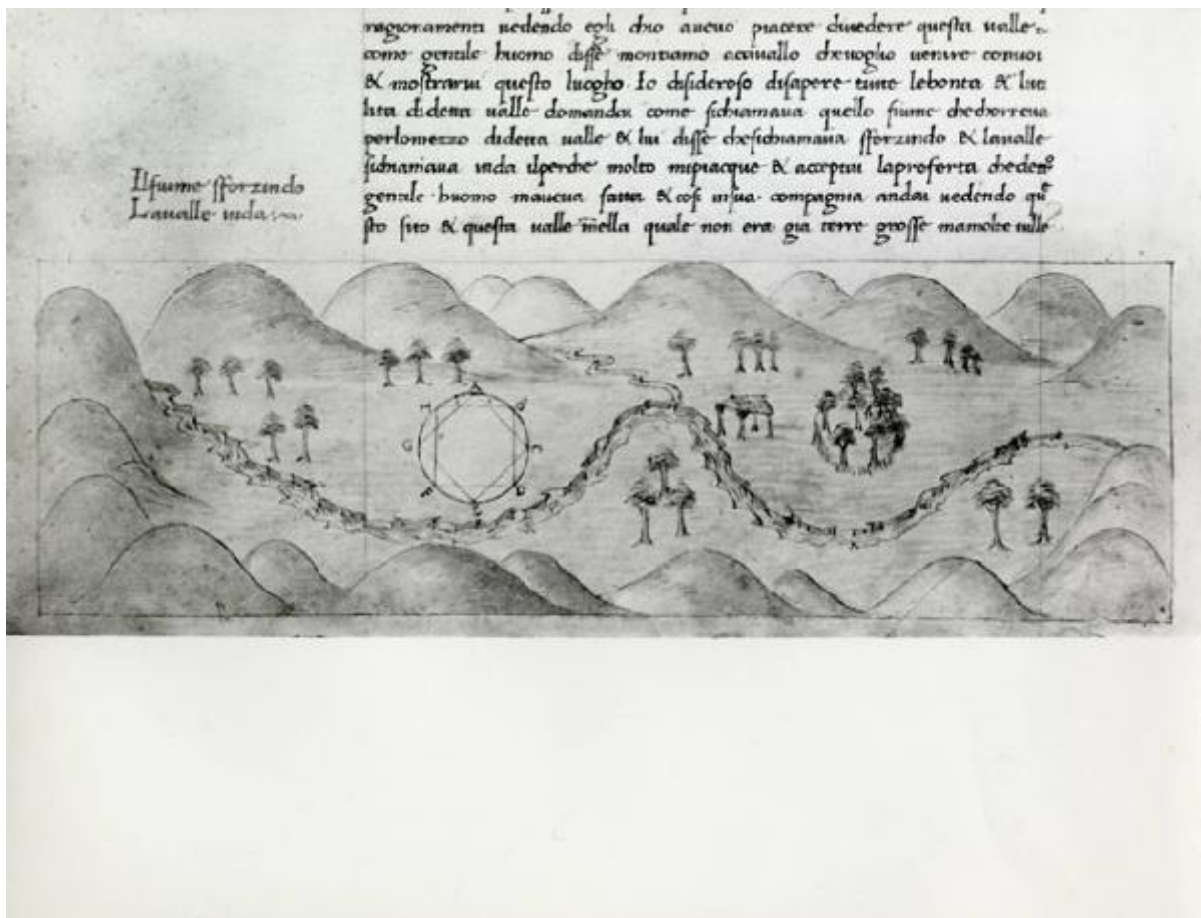 ragionamenti uedendo egli chio aueuo piacere diuedere questa ualle
come gentile huomo disse montiamo accauallo cheuoglio uenire conuoi
& mostrarui questo luogho. Io disideroso disapere tutte lebonta &
lita didetta ualle domandai come sichiamaua quello fiume
perlomezzo didetta ualle & lui disse chesichiamaua sforzindo & laualle
sichiamaua inda ilperche molto mipiacque & acceptai laproferta
gentile huomo maueua fatta & cosi insua compagnia andai uedendo
sto sito & questa ualle nella quale non era gia terre grosse mamolte uille
Ilfiume sforzindo
Laualle inda